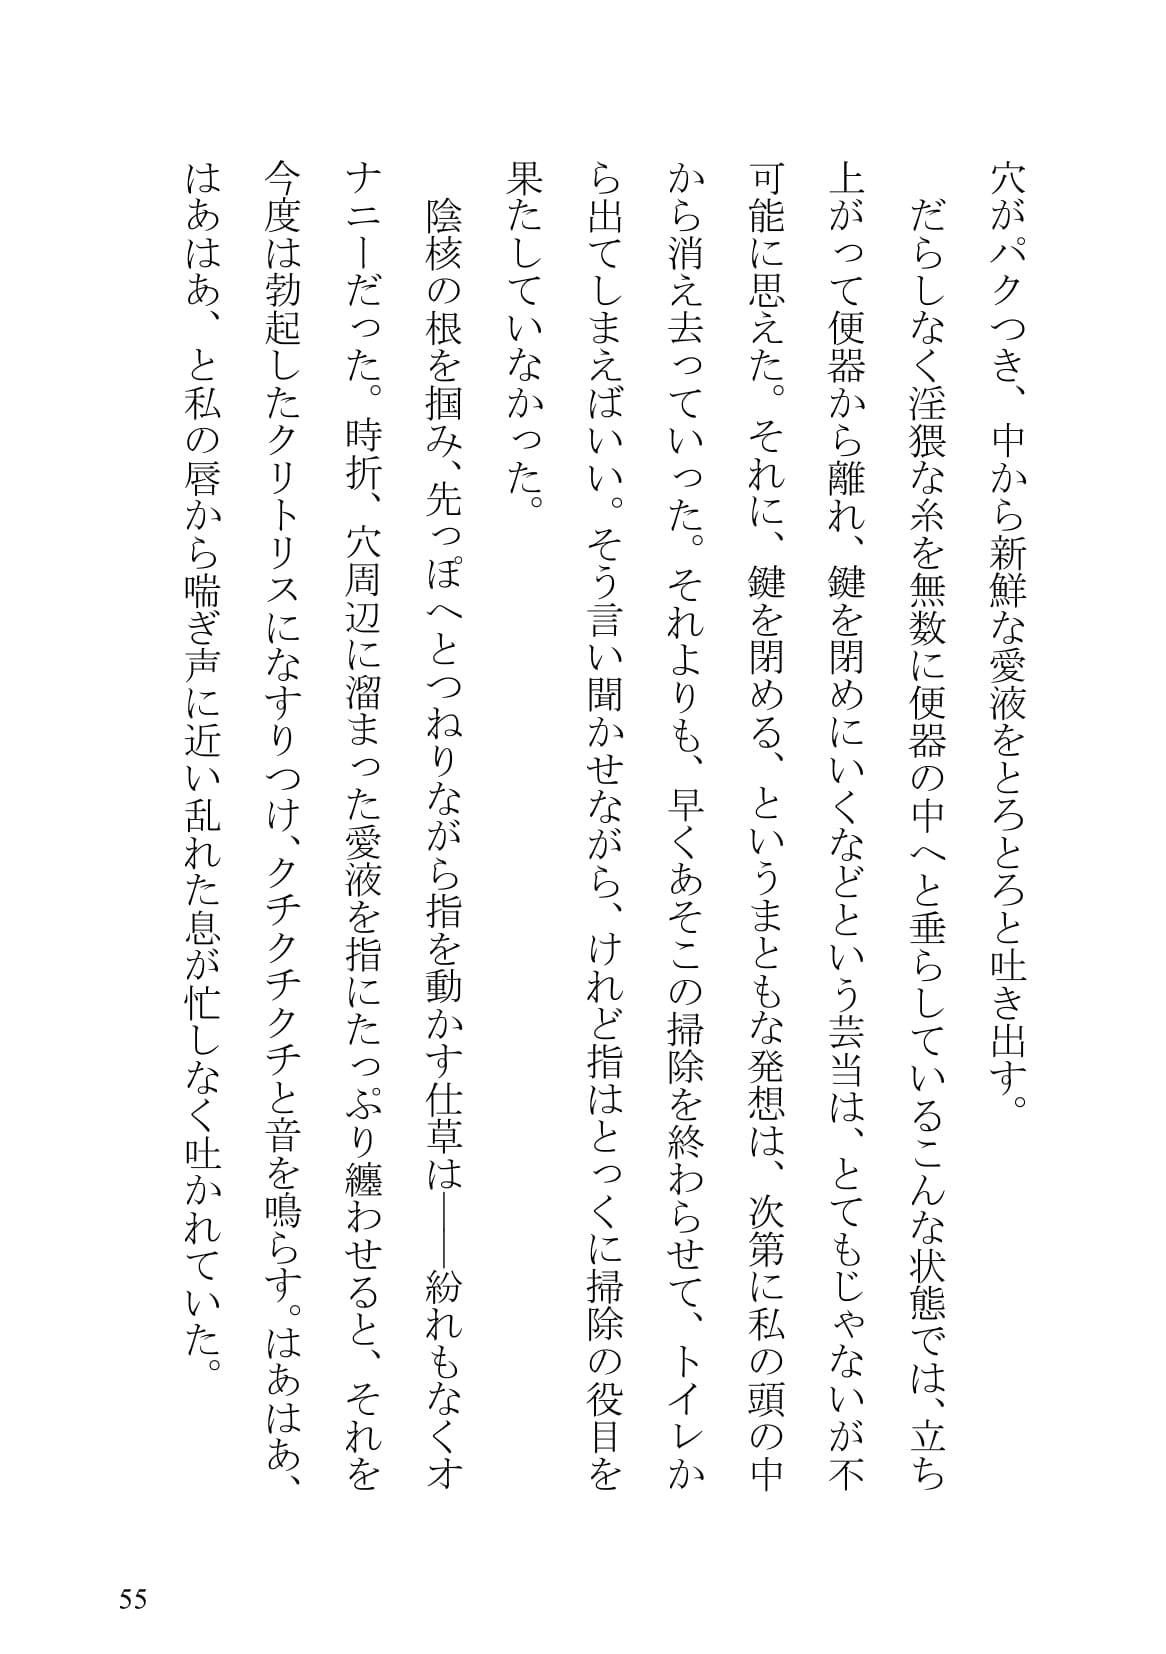 穴がパクつき、中から新鮮な愛液をとろとろと吐き出す。
　だらしなく淫猥な糸を無数に便器の中へと垂らしているこんな状態では、立ち
上がって便器から離れ、鍵を閉めにいくなどという芸当は、とてもじゃないが不
可能に思えた。それに、鍵を閉める、というまともな発想は、次第に私の頭の中
から消え去っていった。それよりも、早くあそこの掃除を終わらせて、トイレか
ら出てしまえばいい。そう言い聞かせながら、けれど指はとっくに掃除の役目を
果たしていなかった。
　陰核の根を掴み、先っぽへとつねりながら指を動かす仕草は――紛れもなくオ
ナニーだった。時折、穴周辺に溜まった愛液を指にたっぷり纏わせると、それを
今度は勃起したクリトリスになすりつけ、クチクチクチと音を鳴らす。はあはあ、
はあはあ、と私の唇から喘ぎ声に近い乱れた息が忙しなく吐かれていた。
55